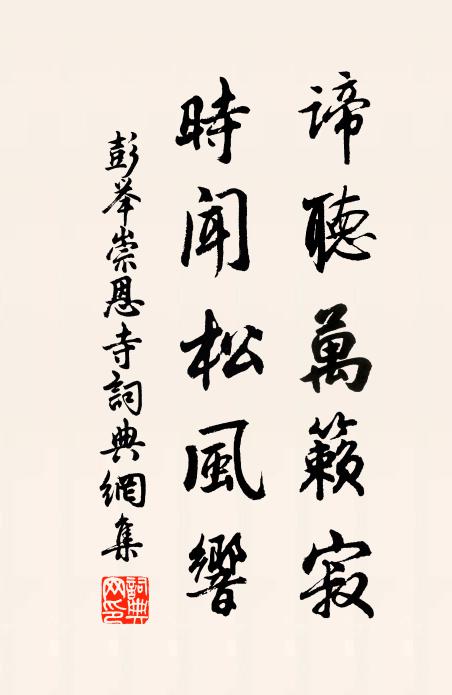 諦聽萬籟寂
時聞松風響
彭举崇恩寺詞典網集
詞典网印